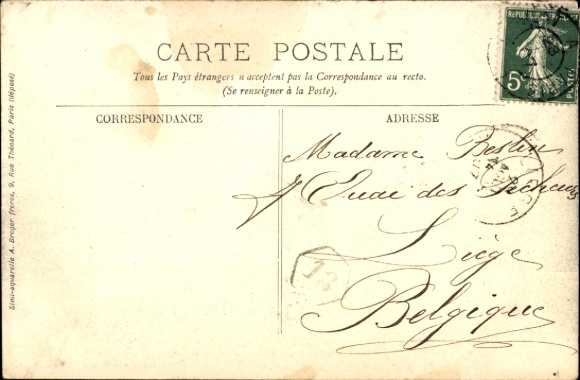 CARTE POSTALE
Tous les Pays étrangers n'acceptent pas la Correspondance au recto.
(Se renseigner à la Poste).
CORRESPONDANCE
ADRESSE
Madame Beslin
Quai des Pecheurs
Liège
Belgique
Simi-aquarelle A. Breger frères, 9, Rue Thénard, Paris (déposé)
5
POSTES